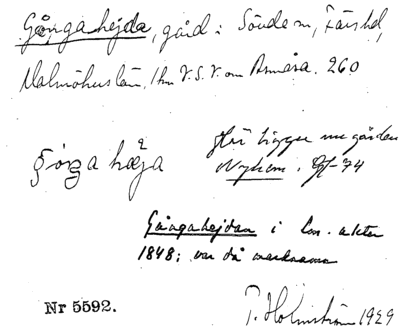 Gångahejda, gård i Södde m, Färs hd,
Malmöhus län, 1 km V.S.V. om Asmåsa. 260
gåŋa hæja
Här ligger nu gården
Nyhem. 74
Gångahejdan i lm. akten
1848; var då marknamn
Nr 5592.
P. Holmström 1929